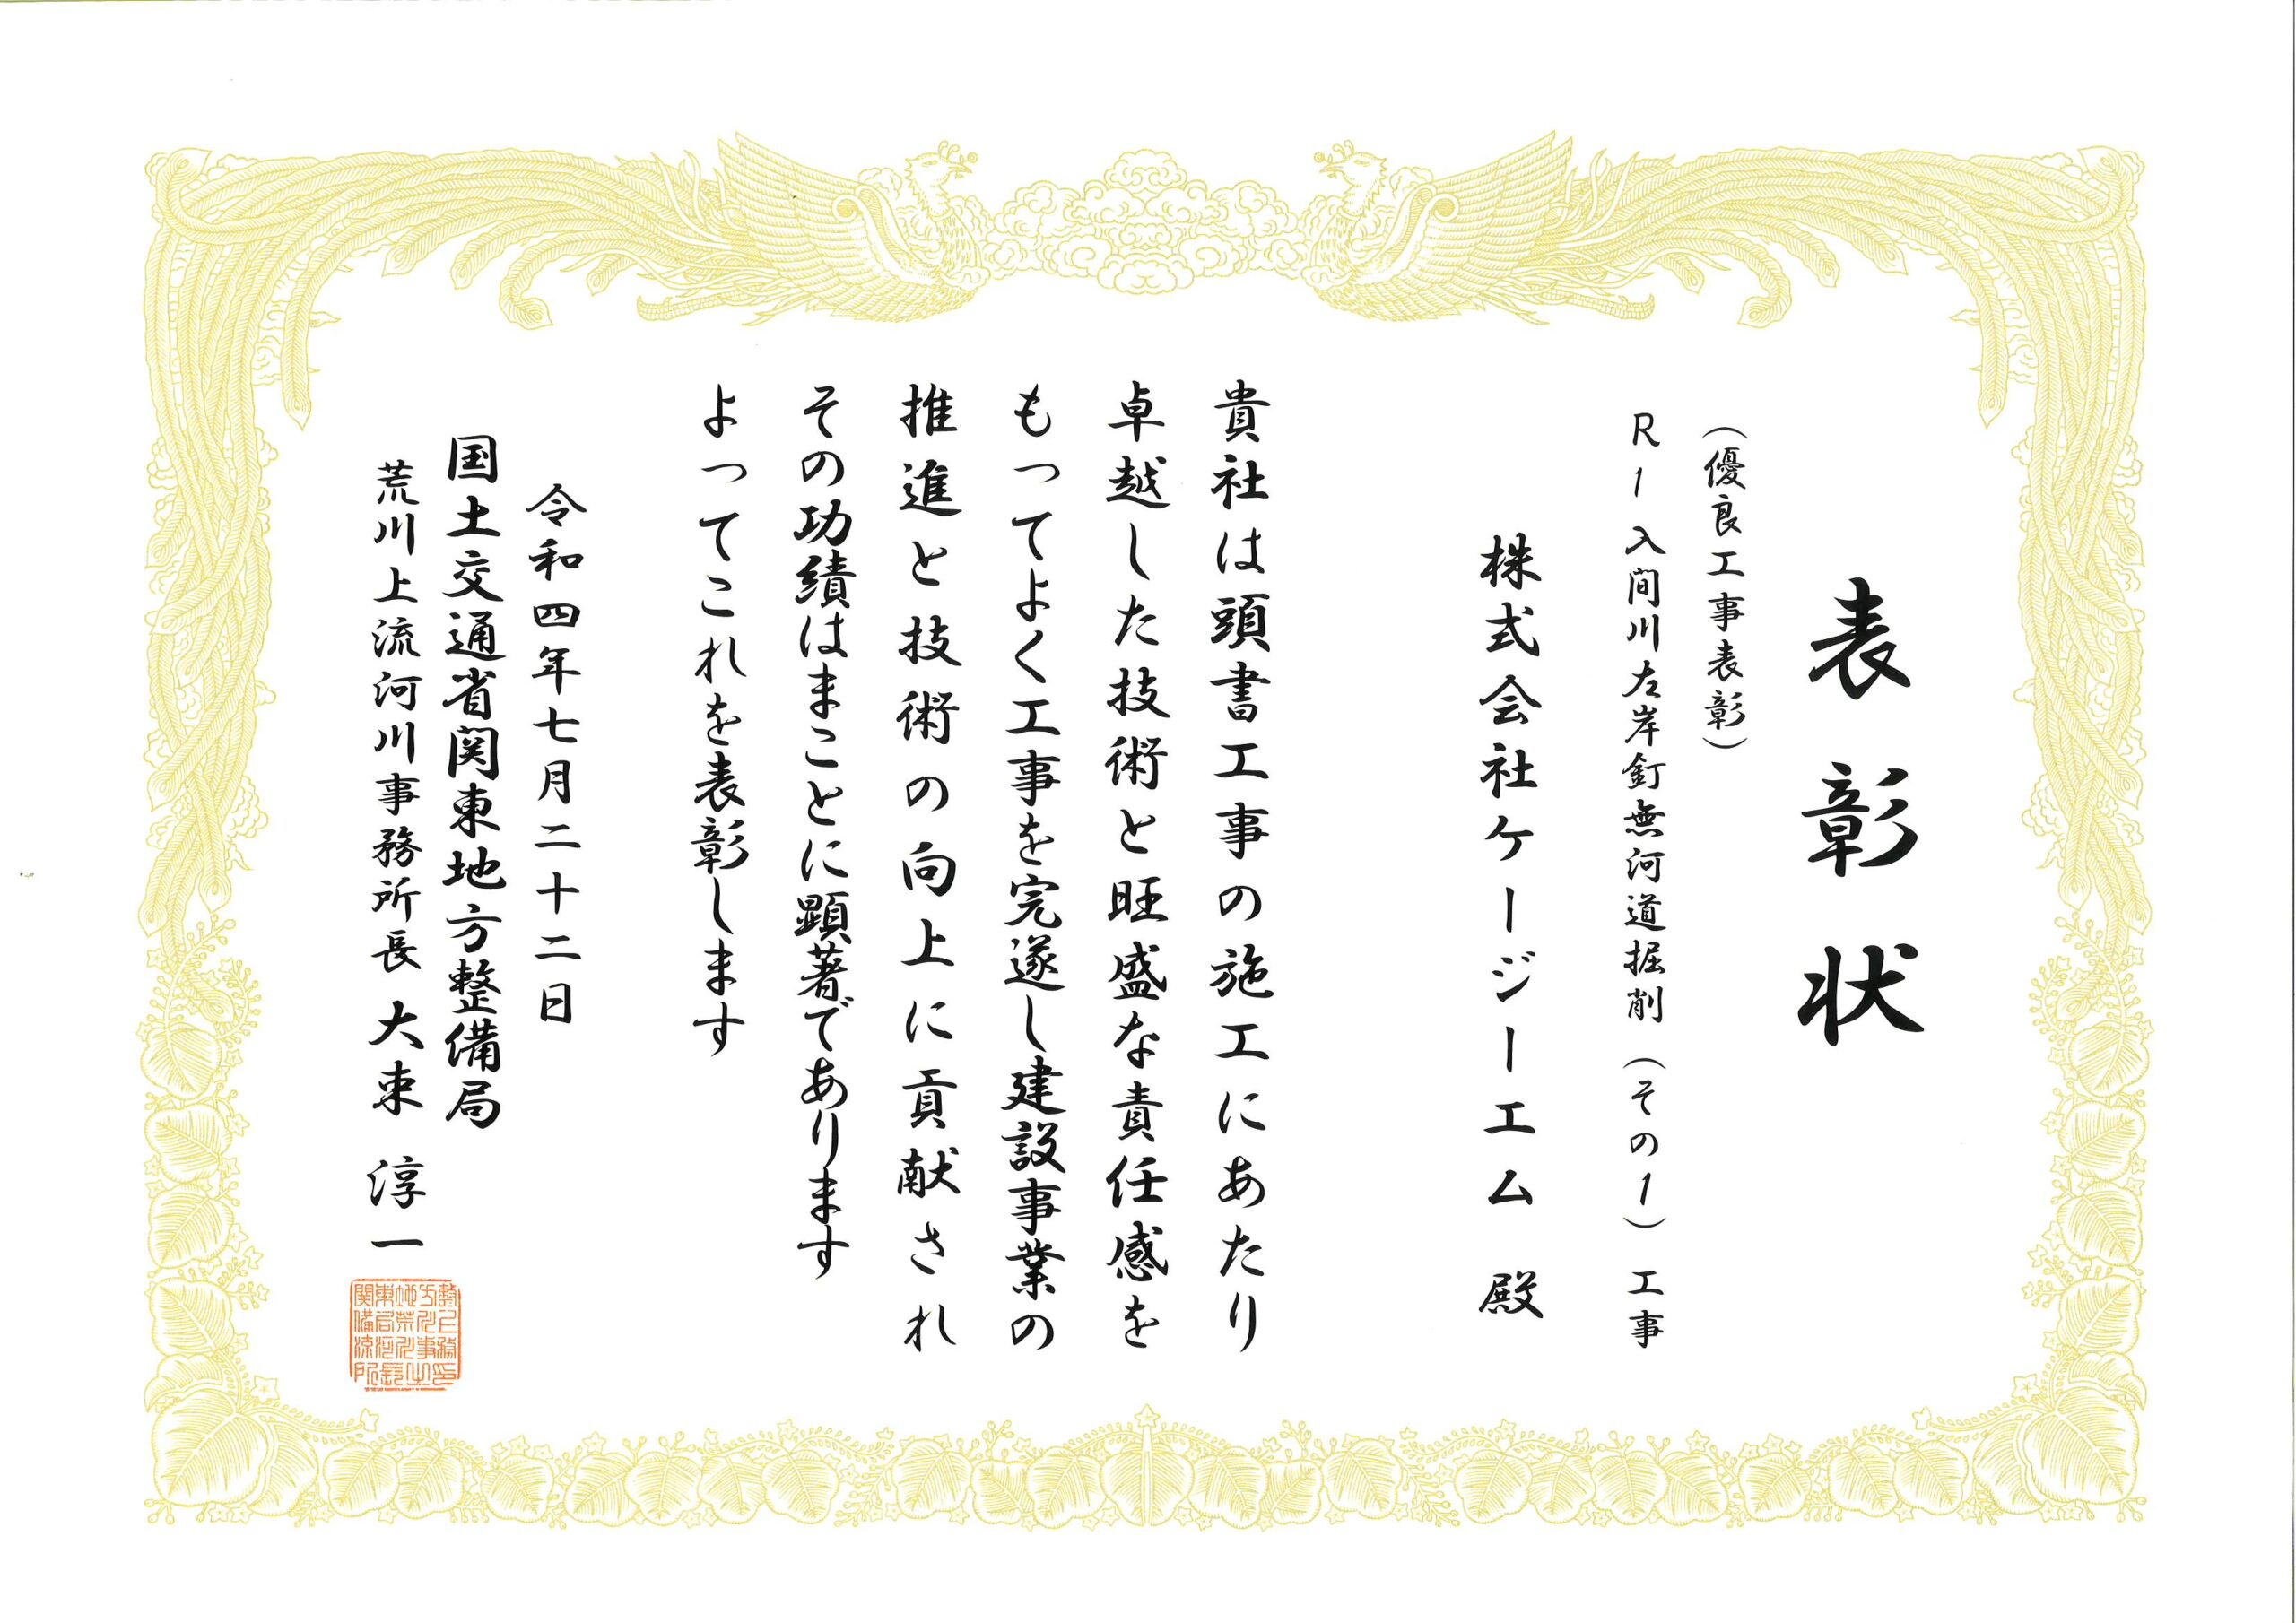 表彰状
（優良工事表彰）
R1入間川左岸釘無河道掘削（その1）工事
株式会社ケージーエム 殿
貴社は頭書工事の施工にあたり
卓越した技術と旺盛な責任感を
もってよく工事を完遂し建設事業の
推進と技術の向上に貢献され
その功績はまことに顕著であります
よってこれを表彰します
令和四年七月二十二日
国土交通省関東地方整備局
荒川上流河川事務所長 大束 淳一